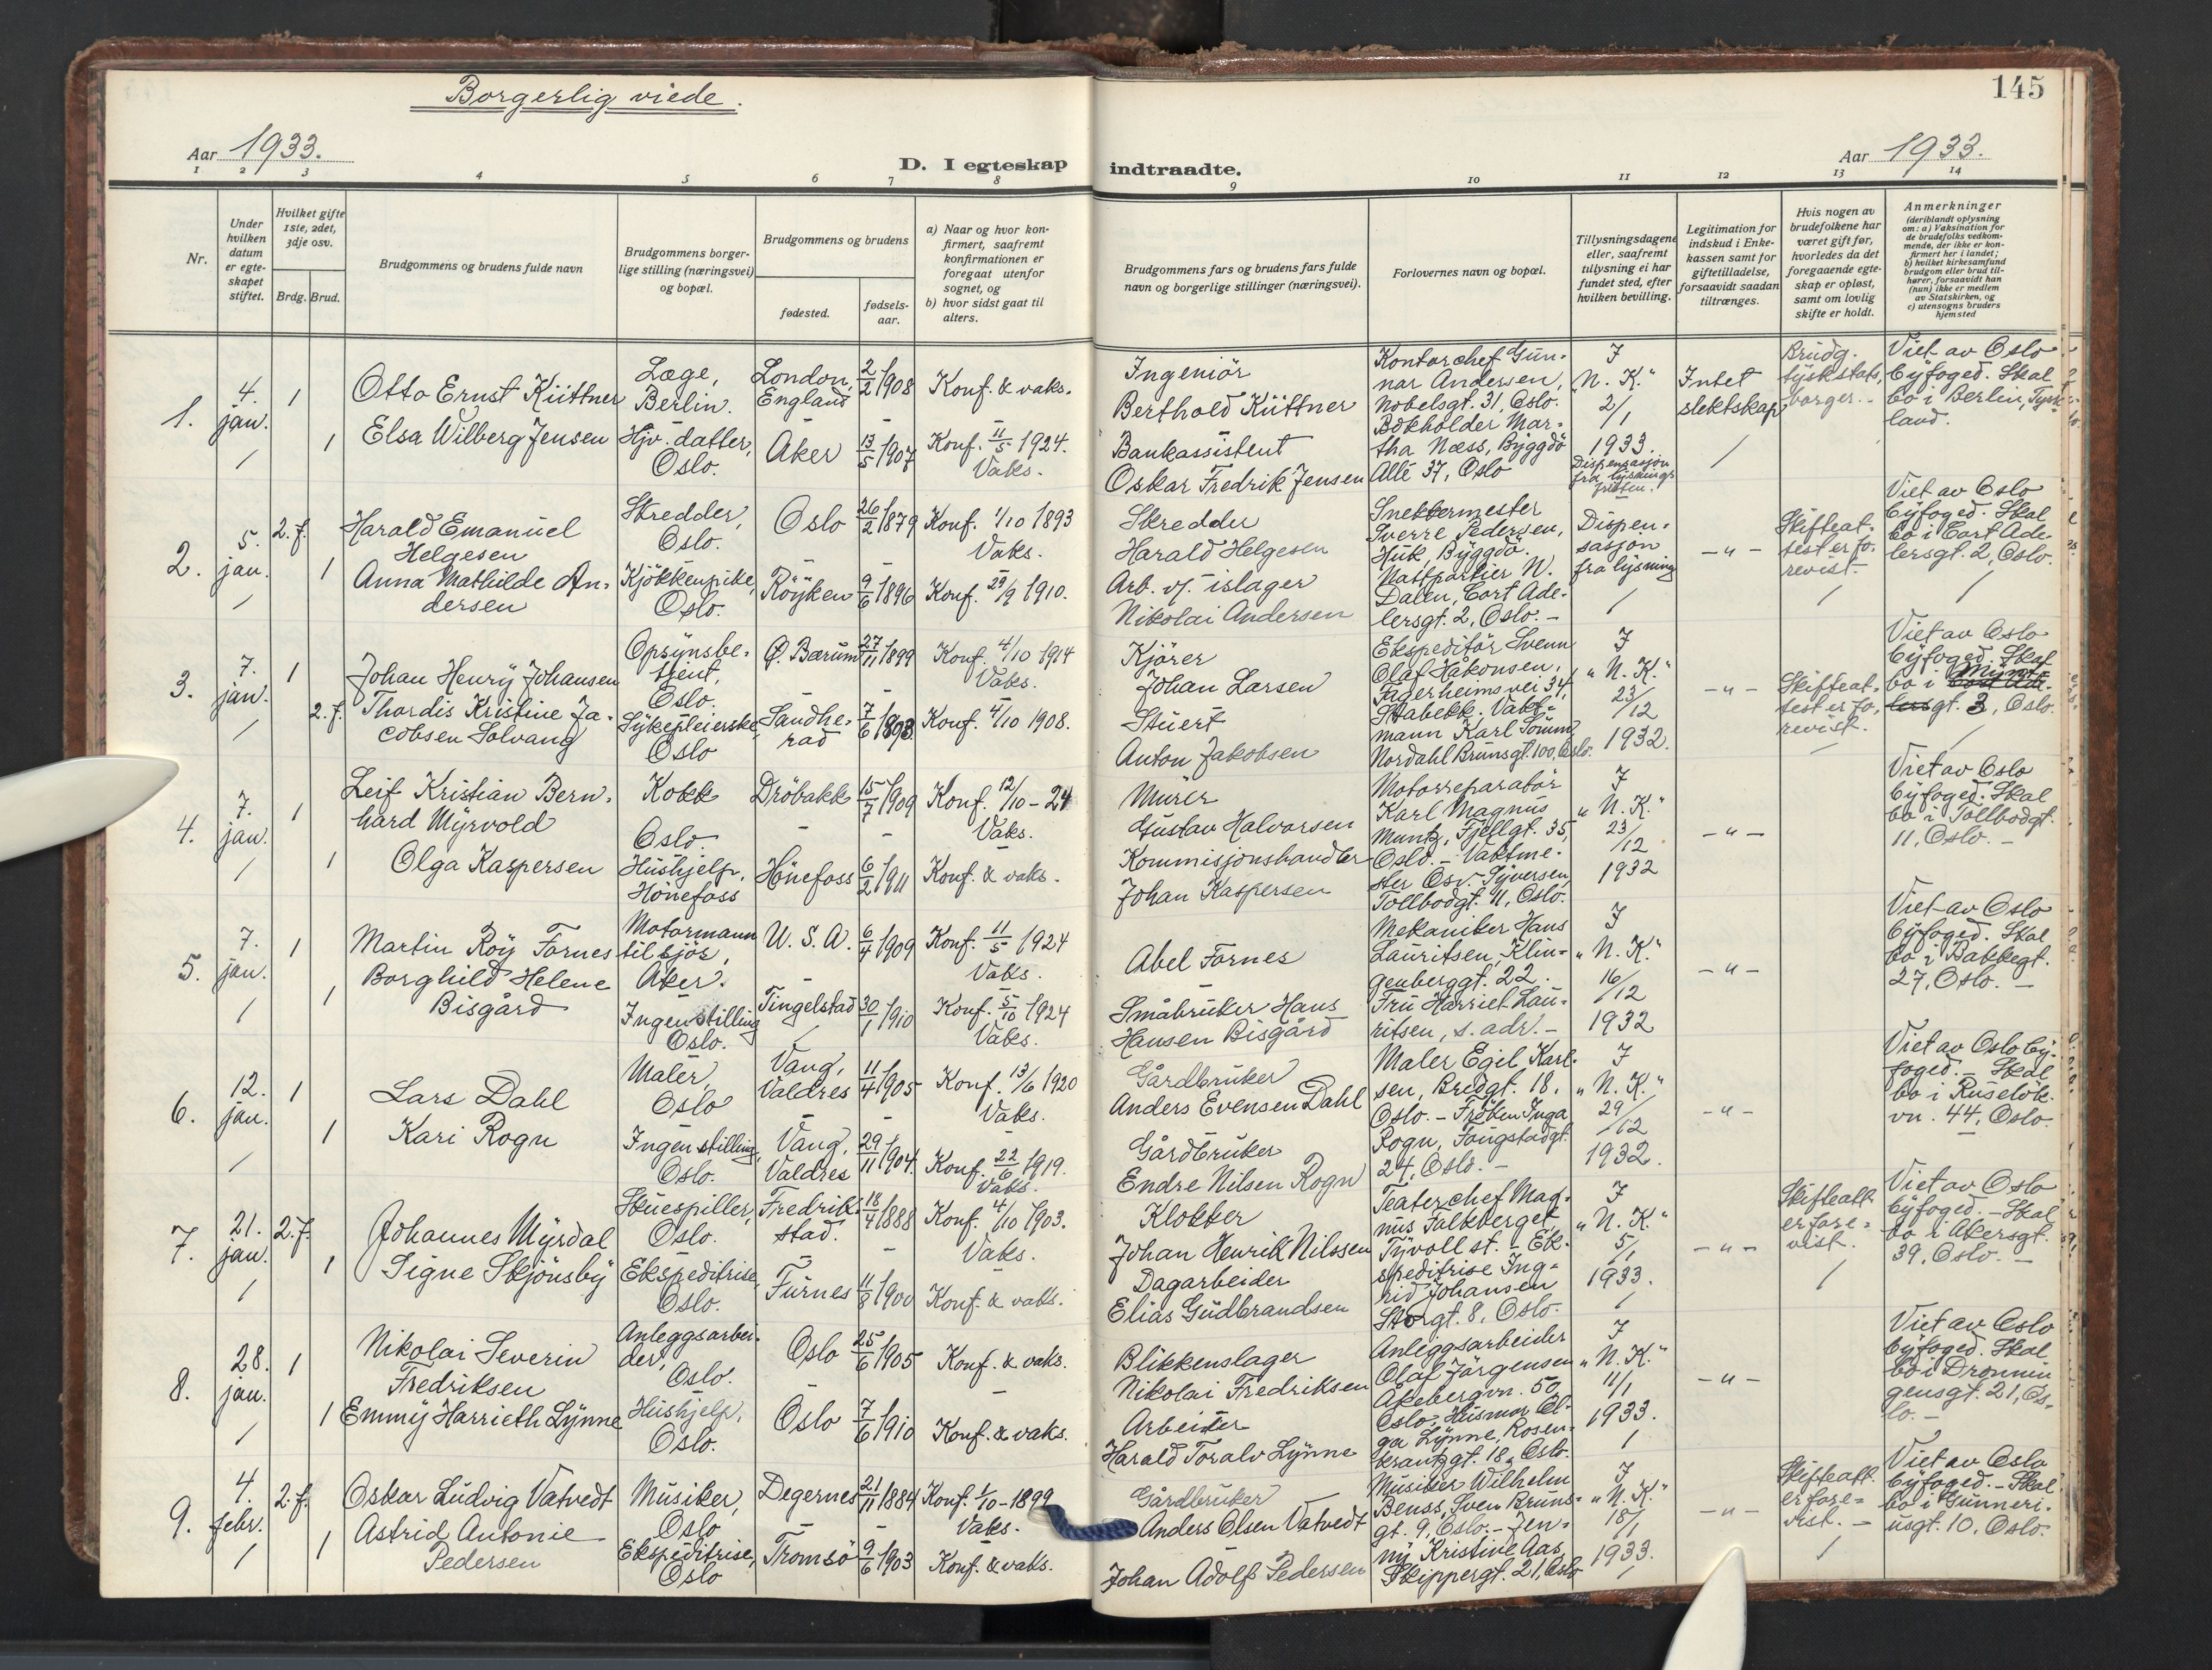 Borgerlig viede.
145
Aar 1933.
D. I egteskap indtraadte.
Aar 1933.
1 2 3 4 5 6 7 8 9 10 11 12 13 14
Nr.
Under hvilken datum er egteskapet stiftet.
Hvilket gifte 1ste, 2det, 3dje osv.
Brdg. Brud.
Brudgommens og brudens fulde navn
Brudgommens borgerlige stilling (næringsvei) og bopæl.
Brudgommens og brudens
fødested.
fødselsaar.
a) Naar og hvor konfirmert, saafremt konfirmationen er foregaat utenfor sognet, og
b) hvor sidst gaat til alters.
Brudgommens fars og brudens fars fulde navn og borgerlige stillinger (næringsvei).
Forlovernes navn og bopæl.
Tillysningsdagene eller, saafremt tillysning ei har fundet sted, efter hvilken bevilling.
Legitimation for indskud i Enkekassen samt for giftetilladelse, forsaavidt saadan tiltrænges.
Hvis nogen av brudefolkene har været gift før, hvorledes da det foregaaende egteskap er opløst, samt om lovlig skifte er holdt.
Anmerkninger
(deriblandt oplysning om: a) Vaksination for de brudefolks vedkommende, der ikke er konfirmert her i landet;
b) hvilket kirkesamfund brudgom eller brud tilhører, forsaavidt han (hun) ikke er medlem av Statskirken, og
c) utensogns bruders hjemsted
1.
4. jan.
1
Otto Ernst Küttner
Læge, Berlin.
London, England
2/2 1908
Konf. & vaks.
1
Elsa Wilberg Jensen
Hjv. datter, Oslo.
Aker
13/5 1907
Konf. 11/5 1924. Vaks.
Ingeniör
Berthold Küttner
Bankassistent
Oskar Fredrik Jensen
Kontorchef Gunnar Andersen, Nobelsgt. 31, Oslo.
Bokholder Martha Næss, Byggdö Allé 37, Oslo
I "N. K." 2/1 1933.
Dispensasjon fra lysningsfristen.
Intet slektskap
Brudg. tysk statsborger.
Viet av Oslo byfoged. Skal bo i Berlin, Tyskland.
2.
5. jan.
2. f.
Harald Emanuel Helgesen
Skredder, Oslo.
Oslo
26/2 1879
Konf. 1/10 1893 Vaks.
1
Anna Mathilde Andersen
Kjökkenpike, Oslo.
Röyken
9/6 1896
Konf. 29/9 1910.
Skredder
Harald Helgesen
Arb. v. islager
Nikolai Andersen
Snekkermester Sverre Pedersen, Huk, Byggdö.
Nattportier N. Dalen, Cort Adelersgt. 2, Oslo.
Dispensasjon fra lysning
- " -
Skifteattest er forevist.
Viet av Oslo byfoged. Skal bo i Cort Adelersgt. 2, Oslo.
3.
7. jan.
1
Johan Henry Johansen
Opsynsbetjent, Oslo.
Ø. Bærum
27/11 1899
Konf. 4/10 1914 Vaks.
2. f.
Thordis Kristine Jacobsen Solvang
Sykepleierske, Oslo
Sandherad
7/6 1893
Konf. 4/10 1908.
Kjörer
Johan Larsen
Stuert
Anton Jakobsen
Ekspeditör Svenn Olaf Håkonsen, Fagerheimsvei 34, Stabekk.
Vaktmann Karl Tömm, Nordahl Brunsgt. 100, Oslo.
I "N. K." 23/12 1932.
- " -
Skifteattest er forevist.
Viet av Oslo byfoged. Skal bo i Myntgt. 3, Oslo.
4.
7. jan.
1
Leif Kristian Bernhard Myrvold
Kokk Oslo.
Dröbakk
15/7 1909
Konf. 12/10 - 24 Vaks.
1
Olga Kaspersen
Hushjelp, Hönefoss
Hönefoss
6/2 1911
Konf. & vaks.
Murer
Gustav Halvorsen
Kommisjonshandler
Johan Kaspersen
Motorreparatör Karl Magnus Muntz, Fjellgt. 35, Oslo.
Vaktmester Osv. Syversen, Tollbodgt. 11, Oslo.
I "N. K." 23/12 1932
- " -
Viet av Oslo byfoged. Skal bo i Tollbodgt. 11, Oslo.
5.
7. jan.
1
Martin Roy Fornes
Motormann tilsjös, Aker.
U. S. A.
6/4 1909
Konf. 11/5 1924 Vaks.
1
Borghild Helene Bisgård
Ingen stilling Oslo.
Tingelstad
30/1 1910
Konf. 5/10 1924 Vaks.
Abel Fornes
Småbruker Hans Hansen Bisgård
Mekaniker Hans Lauritsen, Klingenberggt. 22.
Fru Harriet Lauritsen, s. adr.
I "N. K." 16/12 1932
- " -
Viet av Oslo byfoged. Skal bo i Bakkegt. 27, Oslo.
6.
12. jan.
1
Lars Dahl
Maler, Oslo
Vang, Valdres
11/4 1905
Konf. 13/6 1920 Vaks.
1
Kari Rogn
Ingen stilling, Oslo.
Vang, Valdres
29/11 1904.
Konf. 22/6 1919. Vaks.
Gårdbruker
Anders Evensen Dahl
Gårdbruker
Endre Nilsen Rogn
Maler Egil Karlsen, Bredgt. 18, Oslo.
Fröken Inga Rogn, Fougstadgt. 24, Oslo.
I "N. K." 29/12 1932.
- " -
Viet av Oslo byfoged. Skal bo i Ruselökvn. 44, Oslo.
7.
21. jan.
2. f.
Johannes Myrdal
Skuespiller, Oslo.
Fredrikstad.
18/4 1888
Konf. 4/10 1903. Vaks.
1
Signe Skjönsby
Ekspeditrise, Oslo.
Furnes
11/8 1900
Konf. & vaks.
Klokker
Johan Henrik Nilssen
Dagarbeider
Elias Gudbrandsen
Teaterchef Magnus Falkberget, Tyvoll st.
Ekspeditrise Ingrid Johansen Storgt. 8, Oslo.
I "N. K." 5/1 1933.
- " -
Skifteatt. er forevist.
Viet av Oslo byfoged. Skal bo i Akersgt. 39, Oslo.
8.
28. jan.
1
Nikolai Severin Fredriksen
Anleggsarbeider, Oslo.
Oslo
25/6 1905
Konf. & vaks.
1
Emmy Harrieth Lynne
Hushjelp, Oslo.
Oslo
7/6 1910
Konf. & vaks.
Blikkenslager
Nikolai Fredriksen
Arbeider
Harald Toralv Lynne
Anleggsarbeider Olaf Jörgensen Åkebergvn. 50, Oslo.
Husmor Olga Lynne, Rosenkrantzgt. 18, Oslo.
I "N. K." 11/1 1933.
- " -
Viet av Oslo byfoged. Skal bo i Dronningensgt. 21, Oslo.
9.
4. febr.
2. f.
Oskar Ludvig Vatvedt
Musiker, Oslo
Degernes
21/11 1884
Konf. 1/10 - 1899 Vaks.
1
Astrid Antonie Pedersen
Ekspeditrise, Oslo
Tromsö
9/6 1903
Konf. & vaks.
Gårdbruker
Anders Olsen Vatvedt
Johan Adolf Pedersen
Musiker Wilhelm Benss, Sven Brunsgt. 9, Oslo.
Jenny Kristine Aas, Skippergt. 21, Oslo
I "N. K." 18/1 1933.
- " -
Skifteatt. er forevist.
Viet av Oslo byfoged. Skal bo i Gunnerusgt. 10, Oslo.